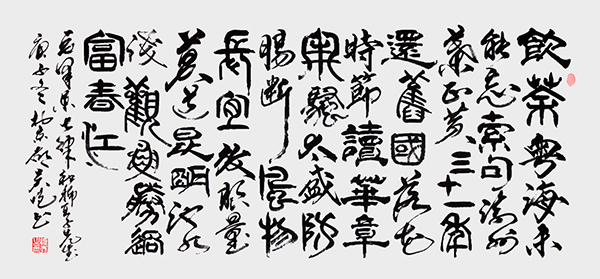 飲茶粤海未
能忘索句渝州
葉正黄三十一年
還舊國落花
時節讀華章
牢騷太盛防
腸斷風物
長宜放眼量
莫道昆明池水
淺觀魚勝過
富春江
毛澤東七律和柳亞子先生
庚子冬